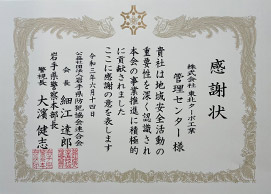 感謝状
株式会社 東北ターボ工業
管理センター様
貴社は地域安全活動の
重要性を深く認識され
本会の事業推進に積極的
に貢献されました
ここに感謝の意を表します
令和三年六月十四日
公益社団法人岩手県防犯協会連合会
会長 細江達郎
岩手県警察本部長
警視長 大濱健志